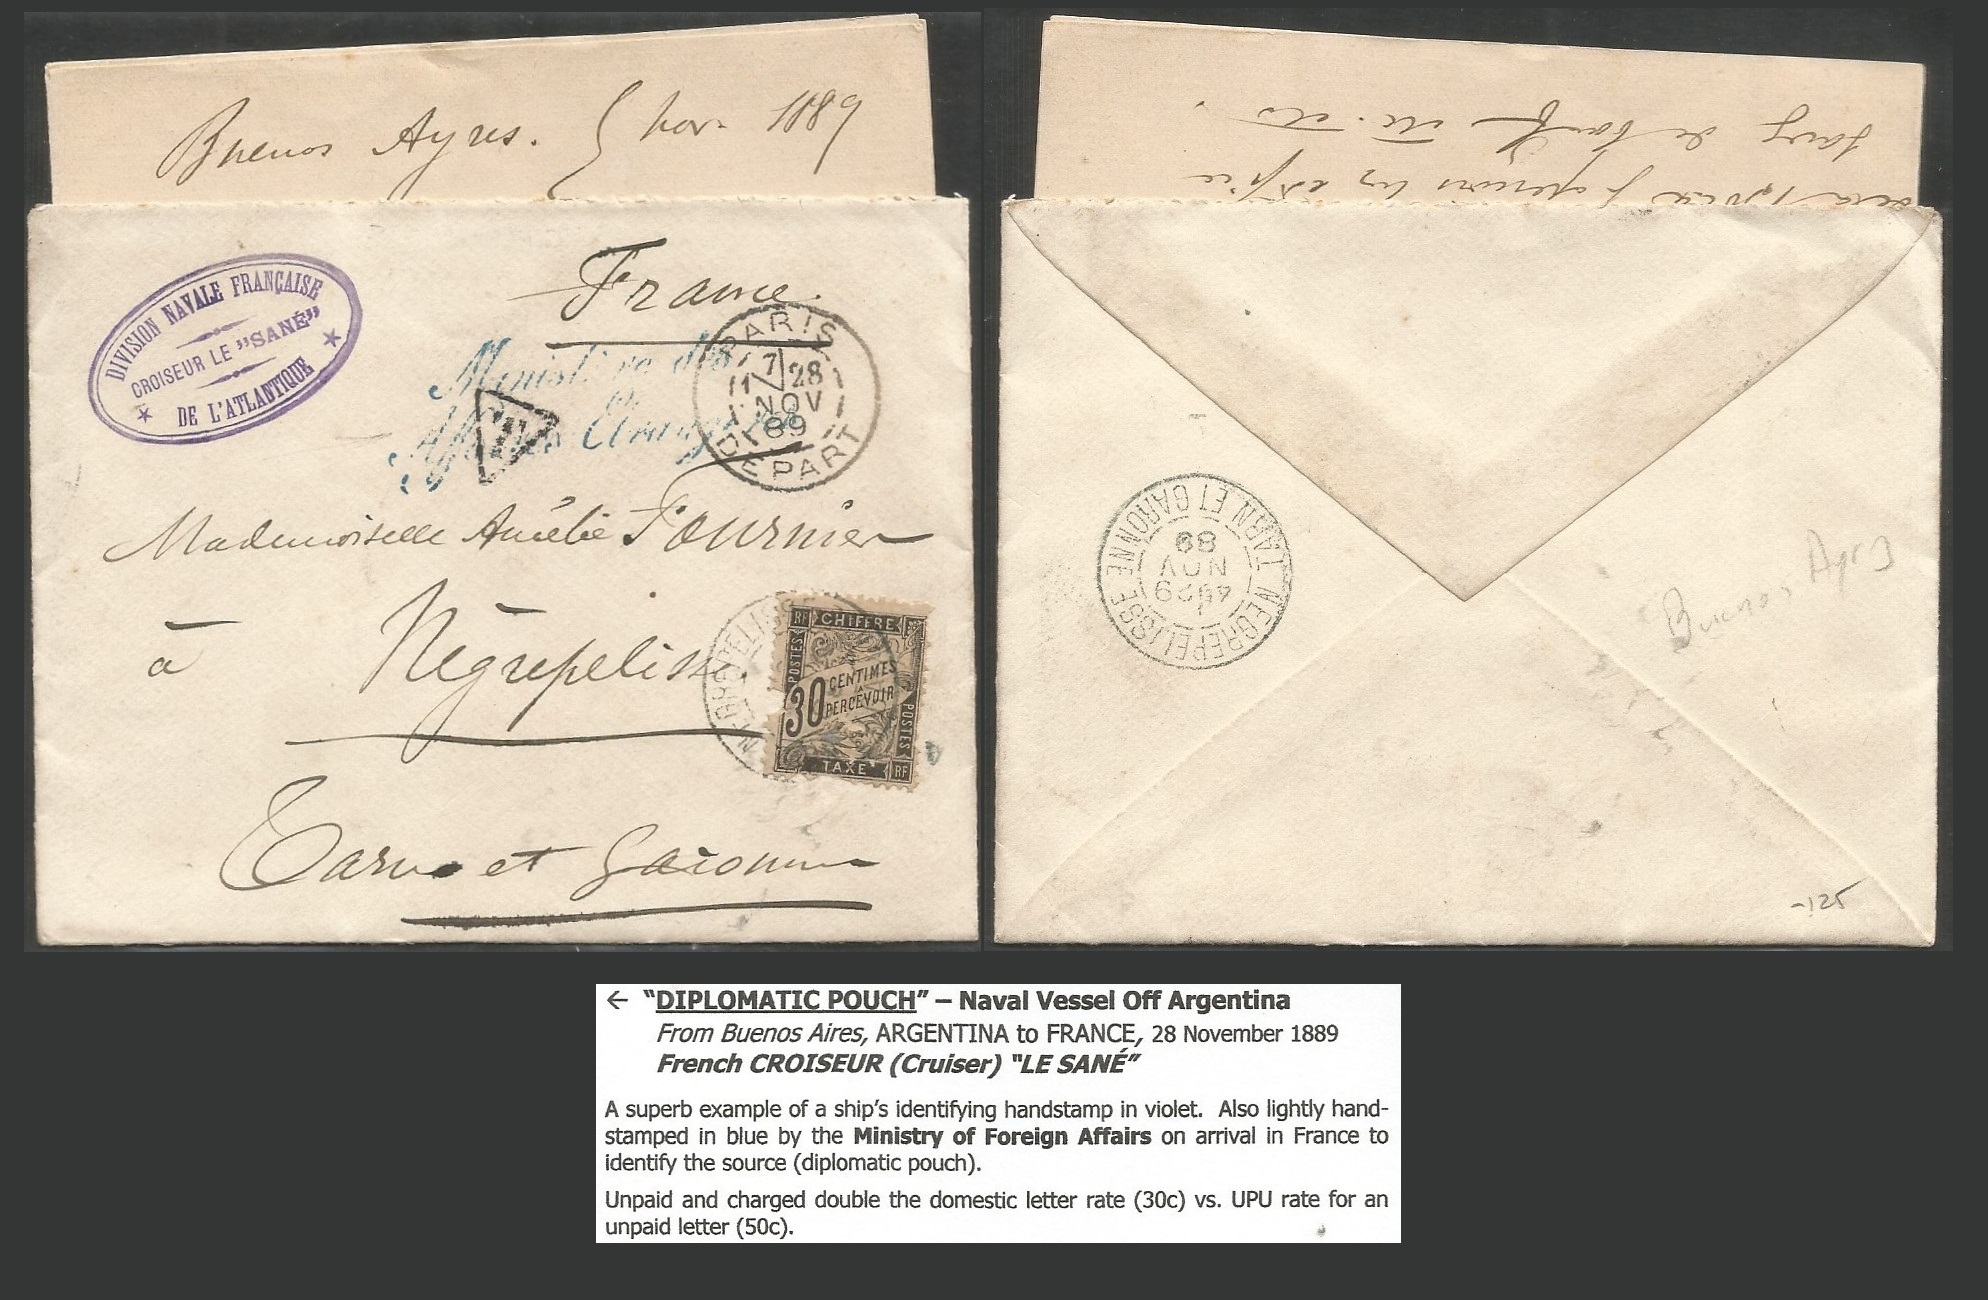 Buenos Ayres. 5 nov. 1889
DIVISION NAVALE FRANÇAISE
CROISEUR LE "SANÉ"
DE L'ATLANTIQUE
France.
Ministère des
Affaires Etrangères
T
PARIS
7
28
NOV
89
DEPART
Mademoiselle Amélie Fournier
à
Négrepelisse
Tarn et Garonne
NEGREPELISSE
RF CHIFFRE
POSTES
30 CENTIMES
À
PERCEVOIR
POSTES
TAXE RF
NEGREPELISSE TARN ET GARONNE
29
NOV
89
Buenos Ayres
-125
← "DIPLOMATIC POUCH" – Naval Vessel Off Argentina
From Buenos Aires, ARGENTINA to FRANCE, 28 November 1889
French CROISEUR (Cruiser) "LE SANÉ"
A superb example of a ship's identifying handstamp in violet. Also lightly hand-
stamped in blue by the Ministry of Foreign Affairs on arrival in France to
identify the source (diplomatic pouch).
Unpaid and charged double the domestic letter rate (30c) vs. UPU rate for an
unpaid letter (50c).